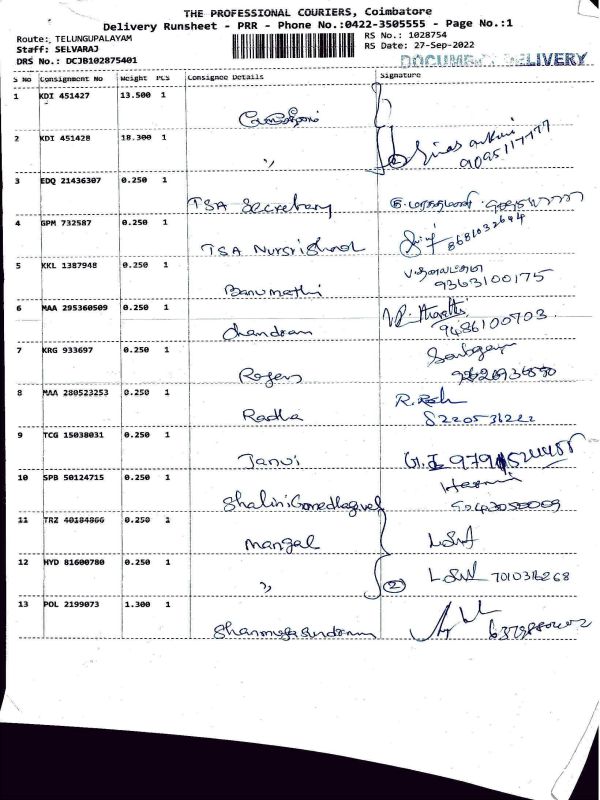 THE PROFESSIONAL COURIERS, Coimbatore
Delivery Runsheet - PRR - Phone No.:0422-3505555 - Page No.:1
Route: TELUNGUPALAYAM
RS No.: 1028754
Staff: SELVARAJ
RS Date: 27-Sep-2022
DRS No.: DCJB102875401
DOCUMENT DELIVERY
S No Consignment No Weight PCS Consignee Details Signature
1 KDI 451427 13.500 1
2 KDI 451428 18.300 1 〃 2
9095117777
3 EDQ 21436307 0.250 1 TSA Secretary
4 GPM 732587 0.250 1 TSA
8681032694
5 KKL 1387948 0.250 1 Banumathi
9363100175
6 MAA 295360509 0.250 1 Chandram
9486100703
7 KRG 933697 0.250 1 Rogers
8 MAA 280523253 0.250 1 Radha
8220531222
9 TCG 15038031 0.250 1 Janvi
10 SPB 50124715 0.250 1 Shalini
11 TRZ 40184866 0.250 1 Mangal
12 HYD 81600780 0.250 1 〃 2 7010316268
13 POL 2199073 1.300 1 Shanmugasundaram